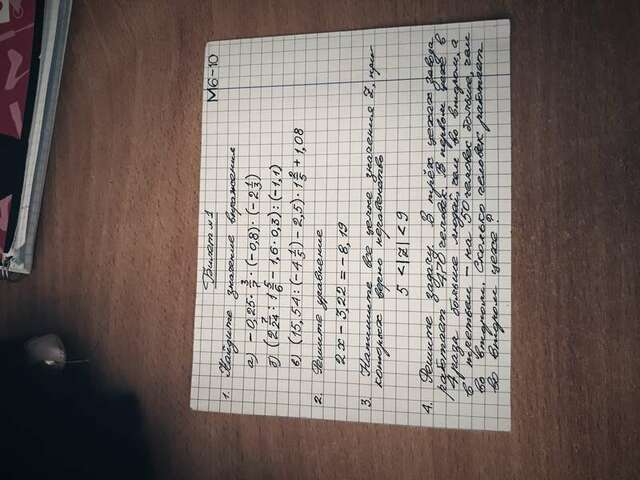 Билет №1
М6-10
1. Найдите значение выражения
а) -0,25 · 3/7 · (-0,8) · (-2 1/3)
б) (2 7/24 : 1 5/6 - 1,6 · 0,3) : (-1,1)
в) (15,54 : (-4 1/5) - 2,5) · 1 2/5 + 1,08
2. Решите уравнение
2x - 3,22 = -8,19
3. Напишите все целые значения Z, при
которых верно неравенство
5 < |Z| < 9
4. Решите задачу. В трёх цехах завода
работает 470 человек. В первом цехе в
4 раза больше людей, чем во втором, а
в третьем - на 50 человек больше, чем
во втором. Сколько человек работает
во втором цехе?